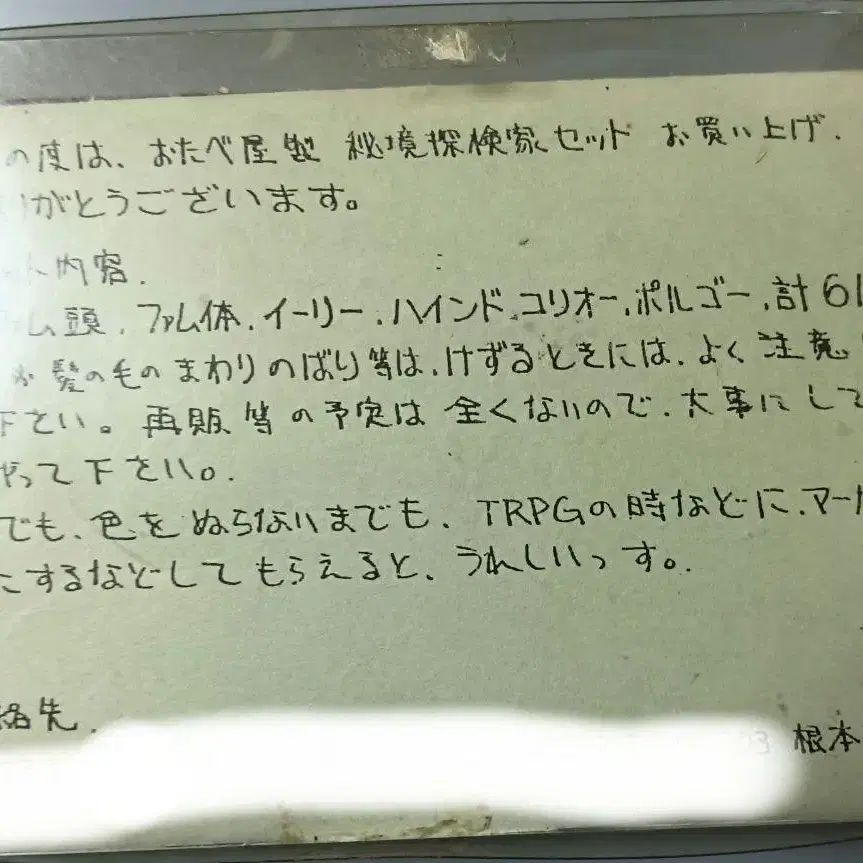 の度は、おたべ屋製 秘境探検家セット お買い上げ.
がとうございます。
ト内容.
ム頭.ファム体.イーリー.ハインド.コリオー.ポルゴー.計6
髪の毛のまわりのばり等は.けずるときには.よく注意
下さい。再販等の予定は全くないので.大事にして
やって下さい。.
でも.色をぬらないまでも.TRPGの時などに.マー
にするなどしてもらえると.うれしいっす。.
絡先.
3 根本